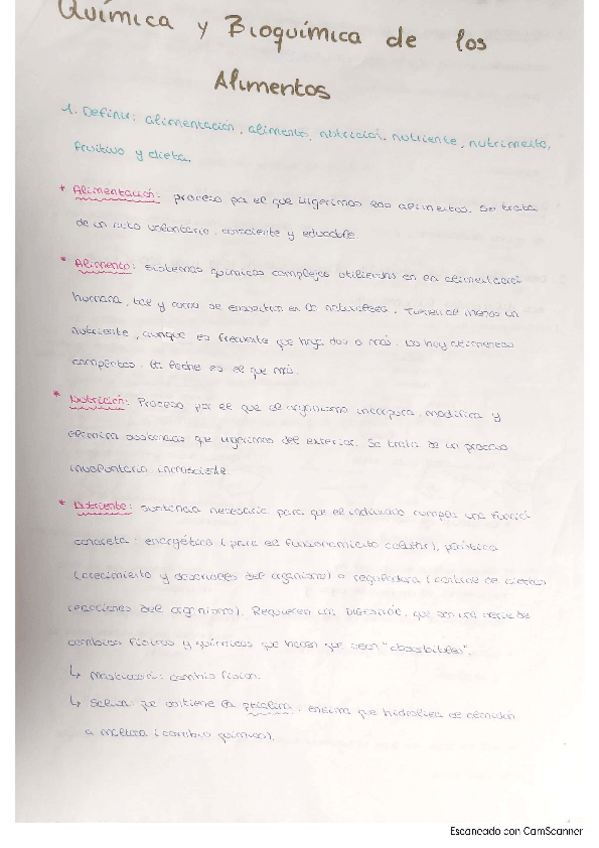 Química y Bioquímica de los
Alimentos
1. Definir: alimentación, alimento, nutrición, nutriente, nutrimento,
fruitivo y dieta.
* Alimentación: proceso por el que ingerimos los alimentos. Se trata
de un acto voluntario, consciente y educable.
* Alimento: sistemas químicos complejos utilizados en la alimentación
humana, tal y como se encuentran en la naturaleza. Tienen al menos un
nutriente, aunque es frecuente que haya dos o más. No hay alimentos
completos. La leche es el que más.
* Nutrición: Proceso por el que el organismo incorpora, modifica y
elimina sustancias que ingerimos del exterior. Se trata de un proceso
involuntario inconsciente.
* Nutriente: sustancia necesaria para que el individuo cumpla una función
concreta: energética (para el funcionamiento celular), plástica
(crecimiento y desarrollo del organismo) o reguladora (control de ciertas
reacciones del organismo). Requieren una DIGESTIÓN, que es una serie de
cambios físicos y químicos que hacen que sean "absorbibles".
↳ Masticación: cambio físico.
↳ Saliva: que contiene la ptialina, enzima que hidroliza de almidón
a maltosa (cambio químico).
Escaneado con CamScanner